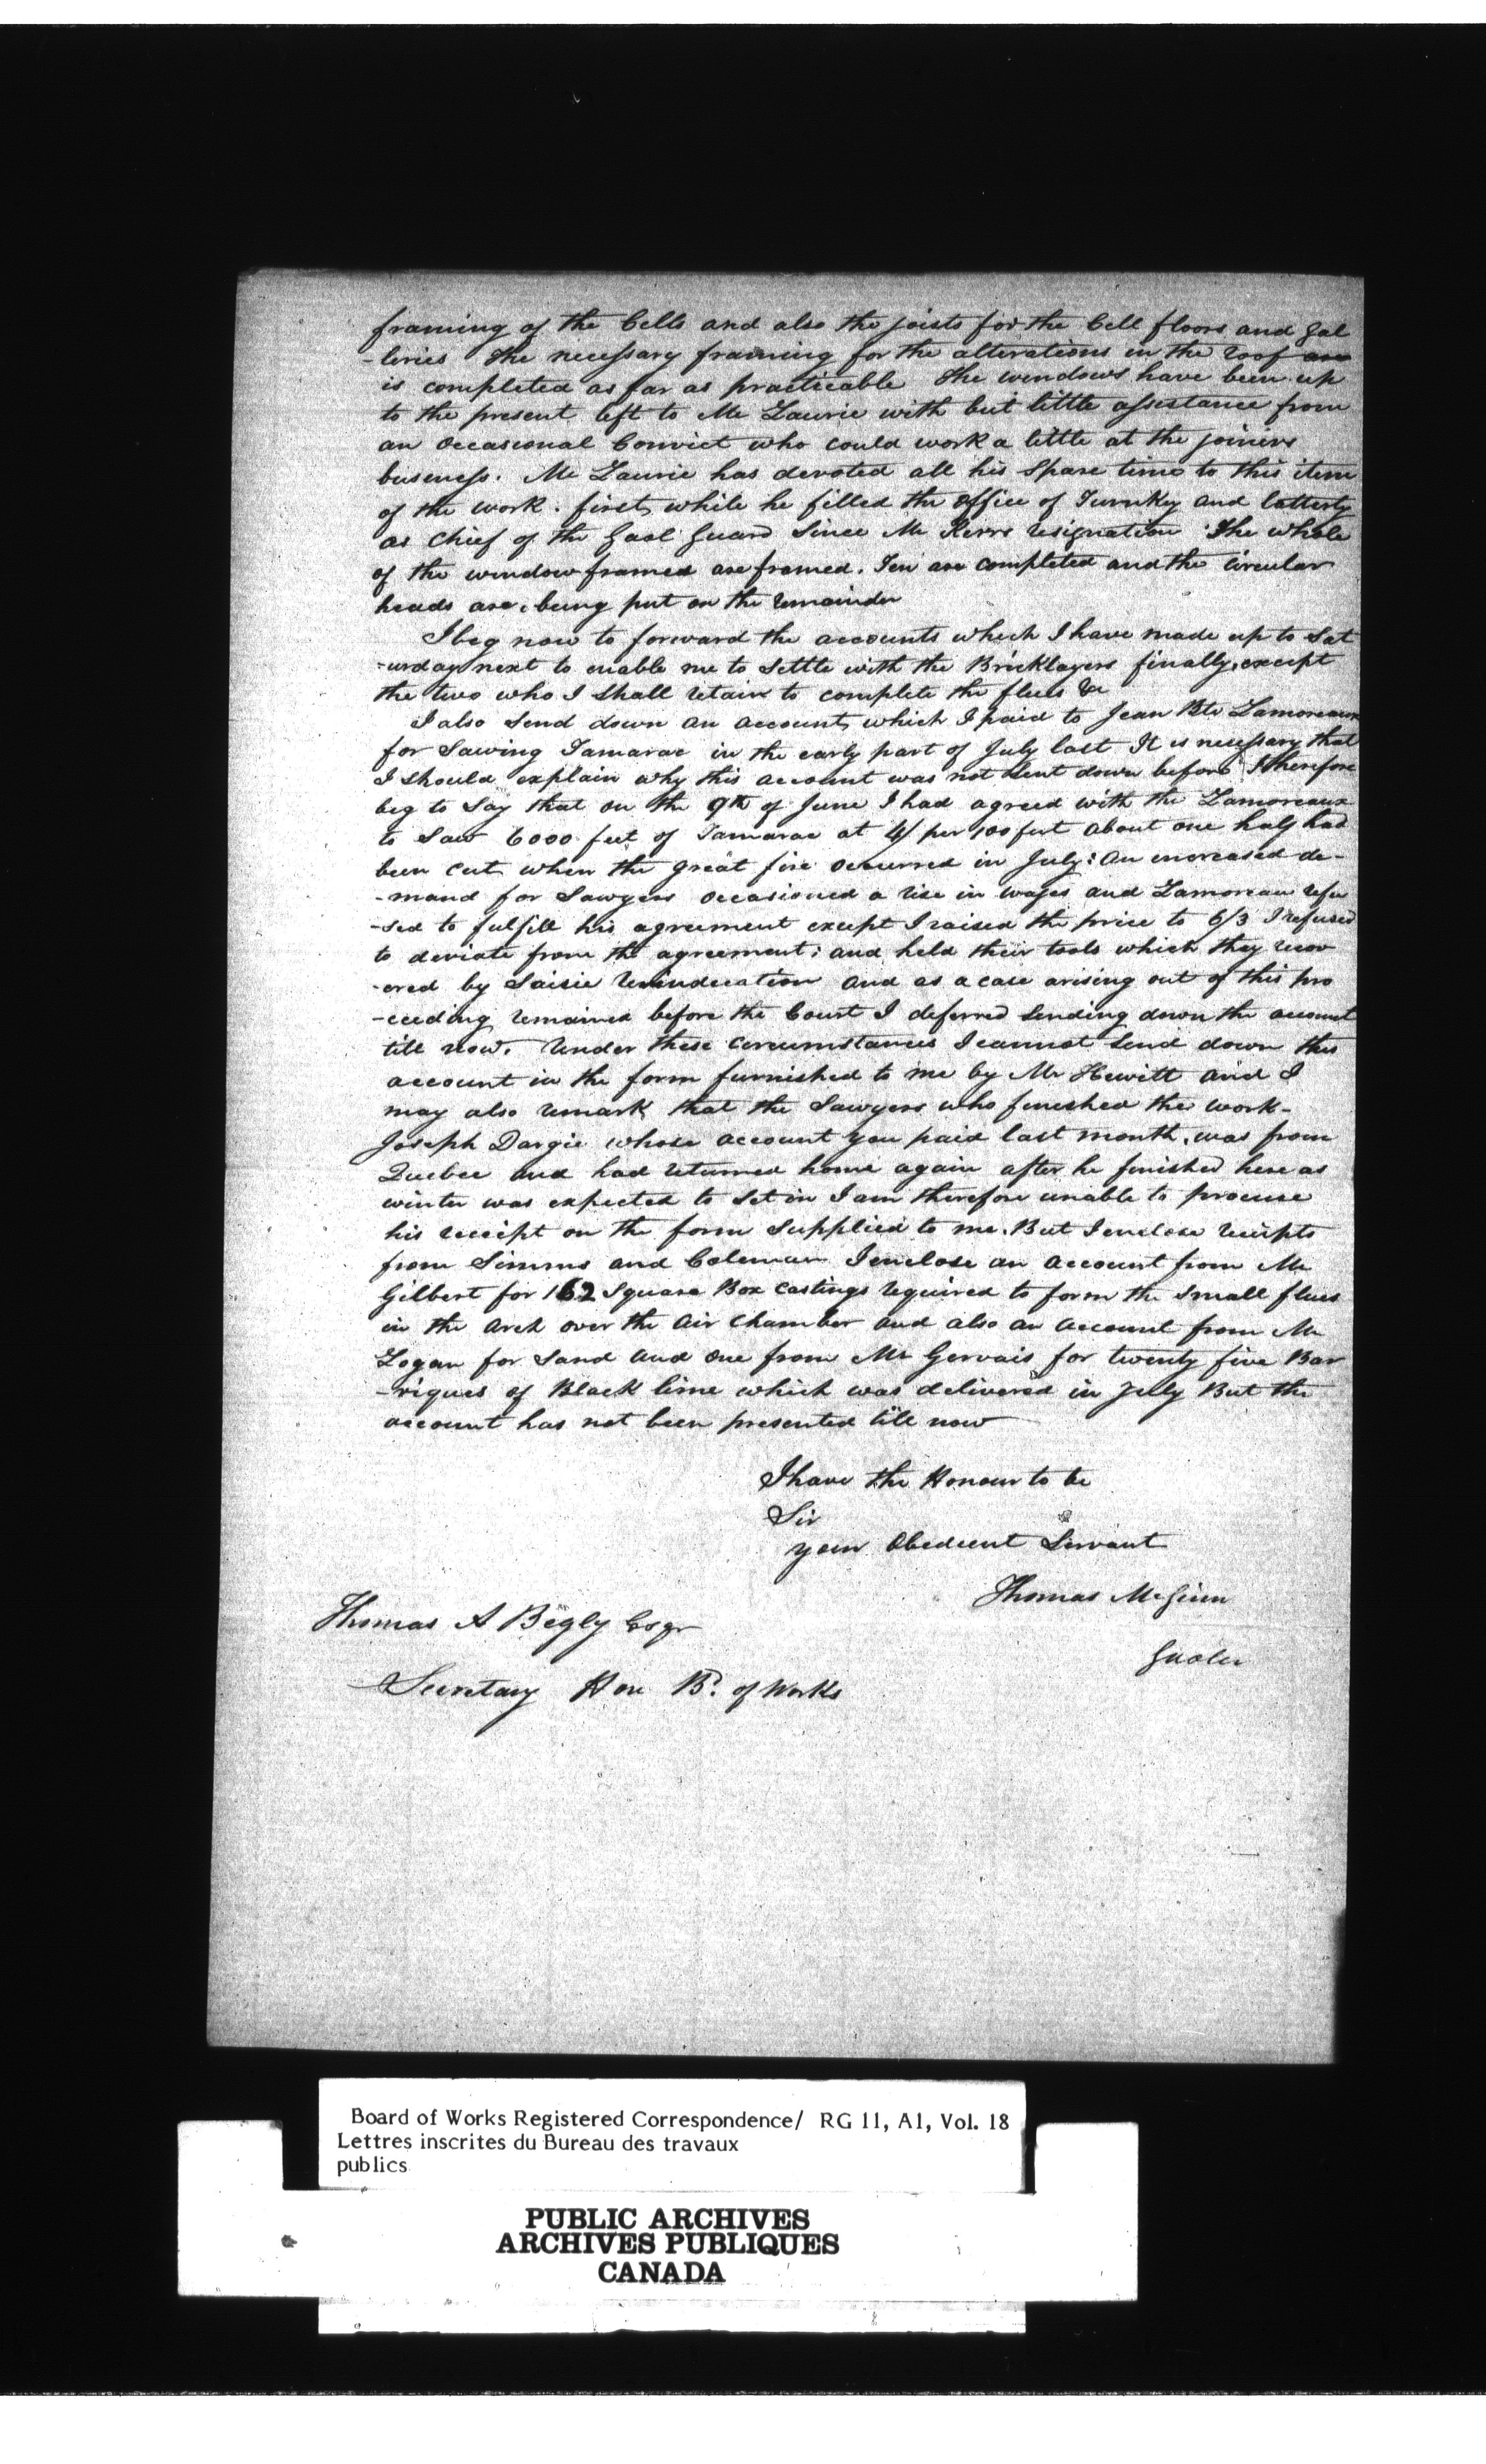 framing of the Cells and also the joists for the Cell floors and gal
-leries The necessary framing for the alterations in the roof are
is completed as far as practicable The windows have been up
to the present left to Mr Laurie with but little assistance from
an occasional Convict who could work a little at the joiners
business. Mr Laurie has devoted all his Spare time to this item
of the work. first while he filled the office of Turnkey and latterly
as Chief of the Gaol Guard Since Mr Kerrs resignation The whole
of the window frames are framed. Ten are completed and the Circular
heads are being put on the remainder
I beg now to forward the accounts which I have made up to Sat
-urday next to enable me to Settle with the Bricklayers finally, except
the two who I shall retain to complete the flues &c
I also Send down an account which I paid to Jean Bte Lamoreaux
for Sawing Tamarac in the early part of July last It is necessary that
I should explain why this account was not Sent down before I therefore
beg to Say that on the 9th of June I had agreed with the Lamoreaux
to Saw 6000 feet of Tamarac at 4/ per 100 feet about one half had
been cut when the great fire occurred in July: an increased de-
-mand for Sawyers occasioned a rise in wages and Lamoreau refu
-sed to fulfill his agreement except I raised the price to 6/3 I refused
to deviate from the agreement; and held their tools which they recov
-ered by Saisie Revindication and as a case arising out of this pro
-ceeding remained before the Court I deferred Sending down the account
till now. Under these Circumstances I cannot Send down this
account in the form furnished to me by Mr Hewitt and I
may also remark that the Sawyers who finished the work-
Joseph Dargie whose account you paid last month, was from
Quebec and had returned home again after he finished here as
winter was expected to Set in I am therefore unable to procure
his receipt on the form Supplied to me. But I enclose receipts
from Simms and Coleman I enclose an account from Mr
Gilbert for 162 Square Box Castings required to form the Small flues
in the Arch over the Air Chamber and also an account from Mr
Logan for Sand and one from Mr Gervais for twenty five Bar
-riques of Black lime which was delivered in July But the
account has not been presented till now
I have the Honour to be
Sir
your Obedient Servant
Thomas McGinn
Gaoler
Thomas A Begly Esqr
Secretary Hon Bd. of Works
Board of Works Registered Correspondence/ RG 11, A1, Vol. 18
Lettres inscrites du Bureau des travaux
publics
PUBLIC ARCHIVES
ARCHIVES PUBLIQUES
CANADA